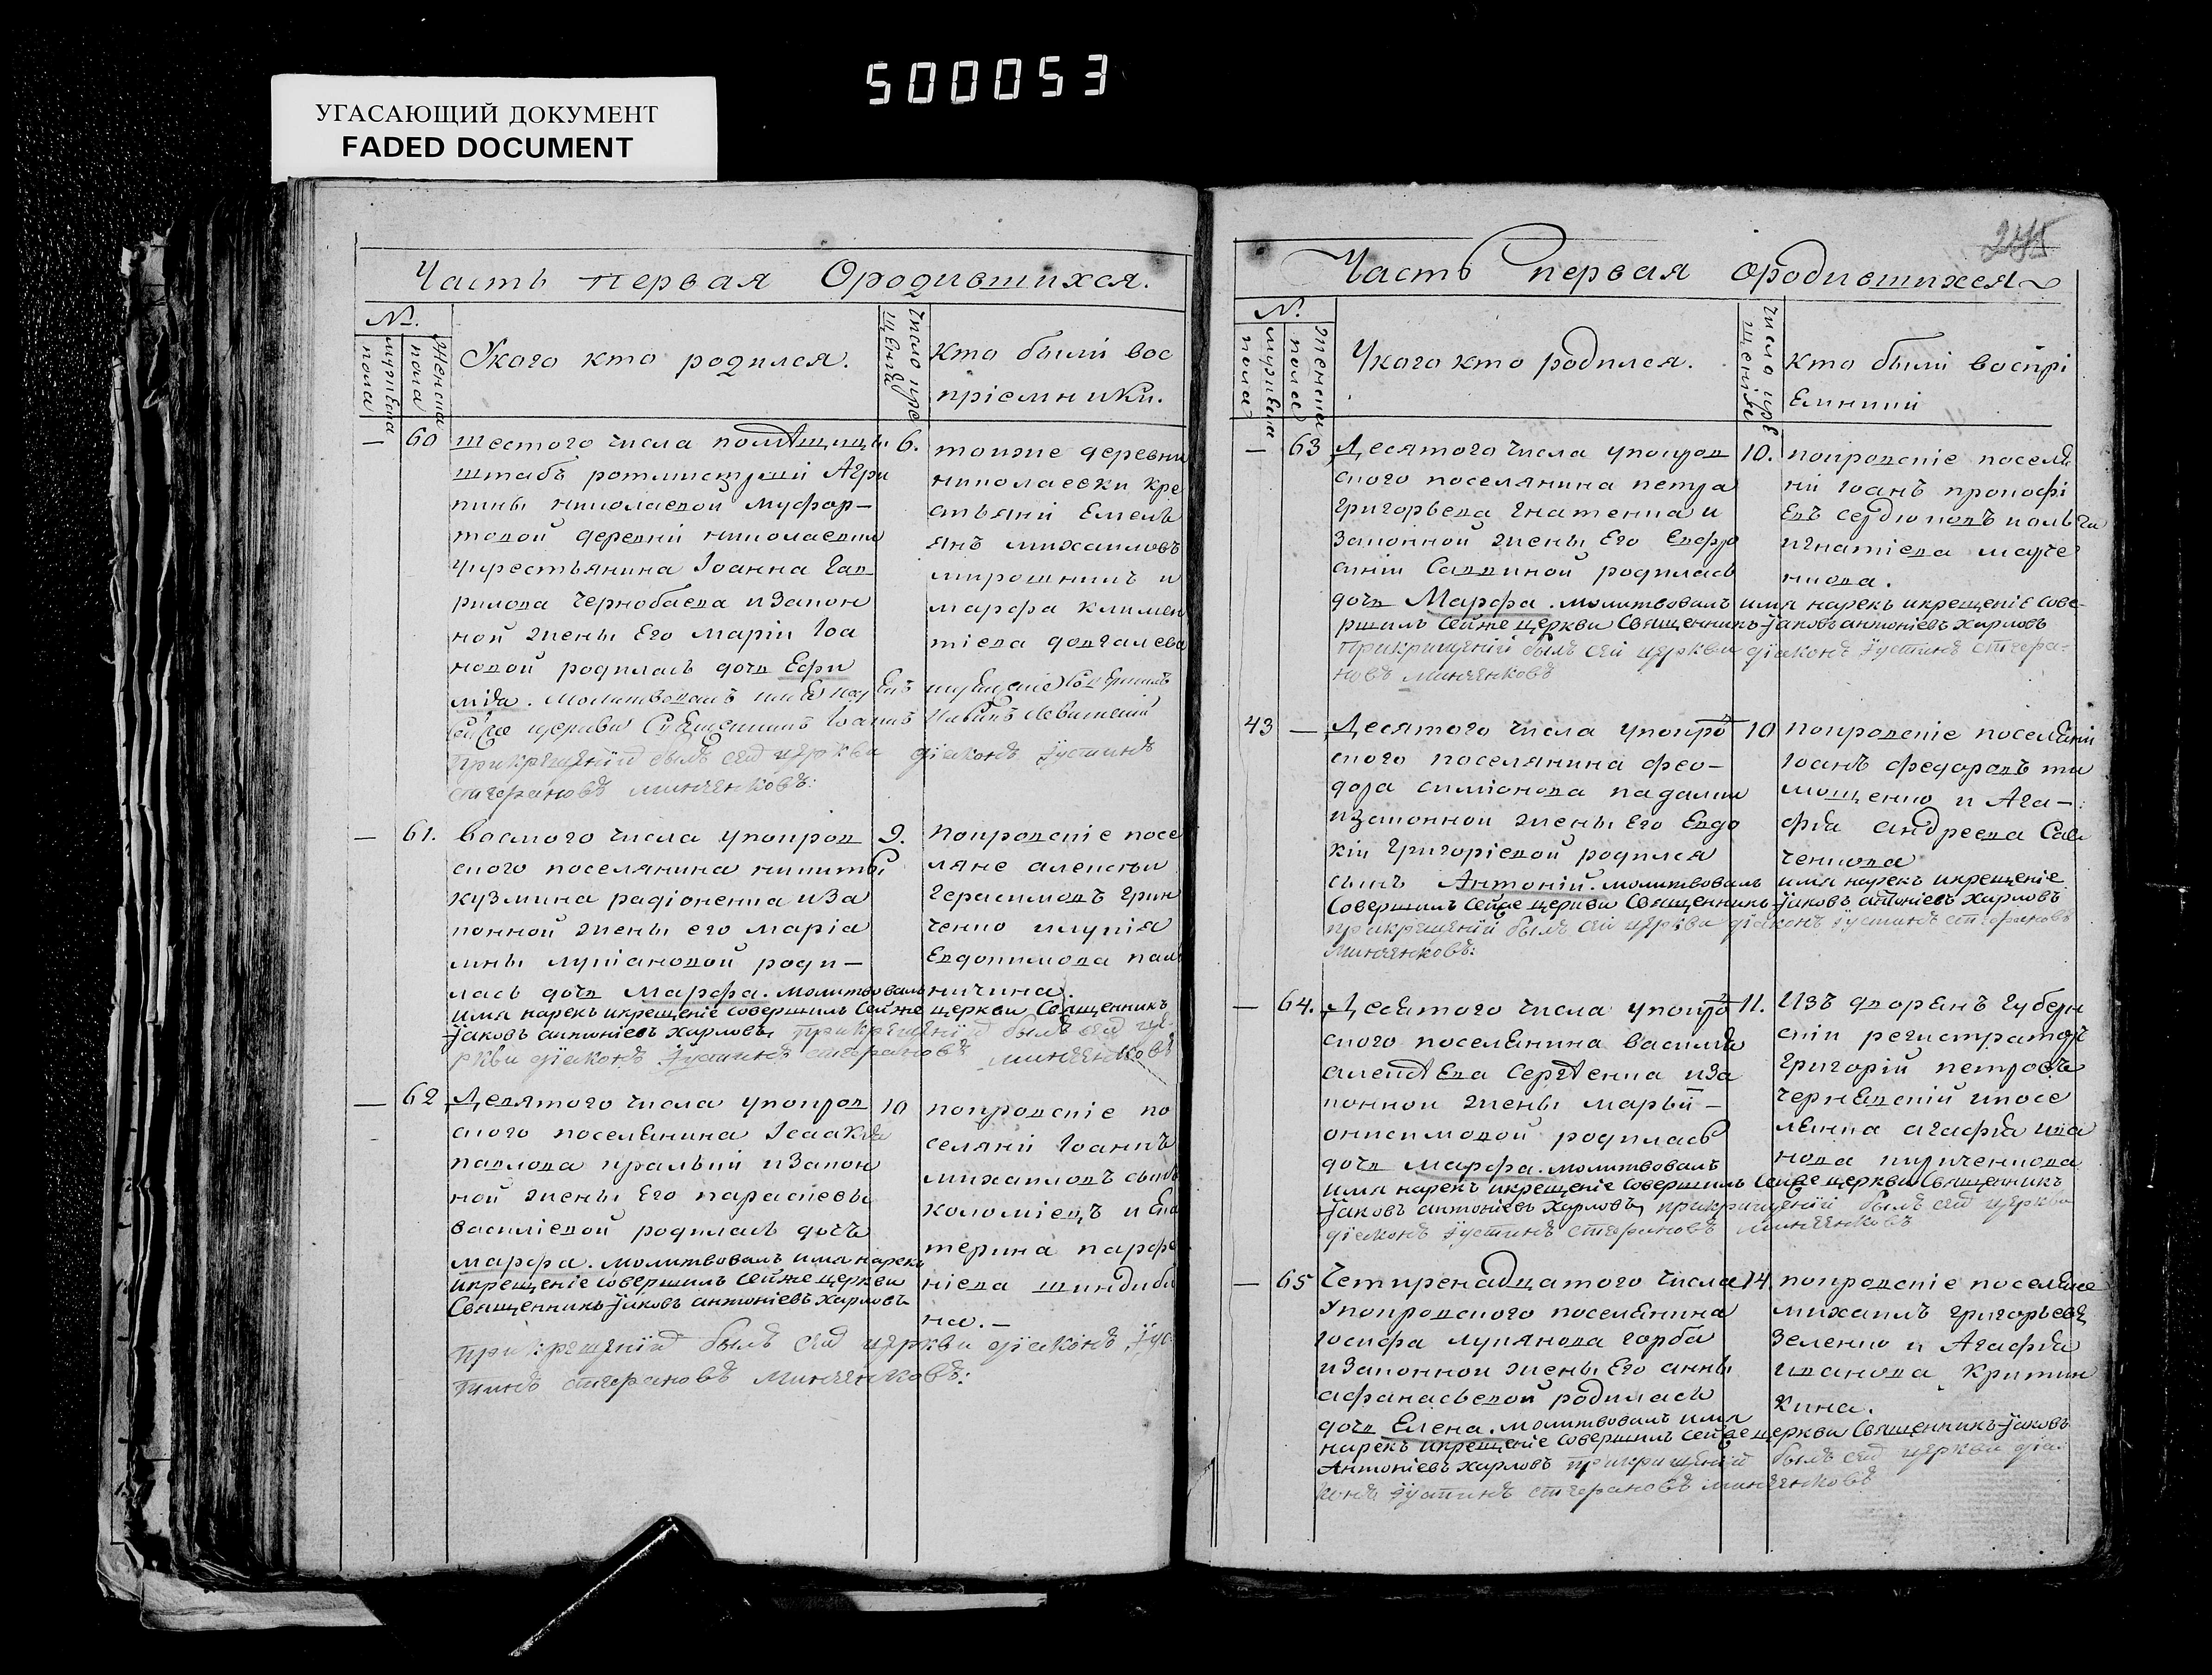 УГАСАЮЩИЙ ДОКУМЕНТ
FADED DOCUMENT
500053
Часть первая Ородившихся.
№.
мужеска пола
Женска пола
Укого кто родился.
Число кре
щенія
Кто были вос
пріемники.
— 60 шестого числа помѣщицы 6.
штабъ ротмистрши Агри
пины николаевой
товой деревни николаевки
укрестьянина Іоанна Гав
рилова Чернобаева изакон
ной жены Его маріи Іоа
новой родилась дочь Ефи
мія. Молитвовалъ имя нарекъ икрещеніе Совершилъ
сейже церкви Священникъ Іоаннъ Левитскій
прикрещеніи былъ сей церкви діаконъ Іустинъ
стефановъ минченковъ:
тоиже деревни
николаевки кре
стьяни Емель
янъ михаиловъ
мирошникъ и
марфа климен
тіева довгалева
— 61. восмого числа упокров 9.
ского поселянина никиты
кузмина радіоненка иза
конной жены его маріа
мны лукіановой роди—
лась дочь Марфа. молитвовалъ
имя нарекъ икрещеніе совершилъ Сейже церкви Священникъ
Іаковъ антоніевъ Харловъ, прикрещеніи былъ сей це
ркви діаконъ Іустинъ стефановъ минченковъ
покровскіе посе
ляне алексѣи
герасимовъ грин
ченко илукія
Евдокимова пал
ничина.
— 62 Девятого числа упокров 10
ского поселянина Ісаакія
павлова кральки изакон
ной жены Его параскевы
василіевой родилась дочь
марфа. молитвовалъ имя нарекъ
икрещеніе совершилъ сейже церкви
Священникъ Іаковъ антоніевъ Харловъ
прикрещеніи былъ сей церкви діаконъ Іус
тинъ стефановъ минченковъ:
покровскіе по
селяни Іоаннъ
михаиловъ сынъ
коломіецъ и Ека
терина парфе
ніева шиндиби
на.—
245
Часть первая ородившихся
№.
мужеска пола
женска пола
Укого кто родился.
Число кре
щенія
кто были воспрі
Емники
— 63 Десятого числа упокров 10.
ского поселянина петра
григорьева Гнатенка и
законной жены Его Евфро
синіи Саввиной родилась
дочь Марфа. молитвовалъ имя нарекъ икрещеніе сове-
ршилъ сейже церкви Священникъ Іаковъ антоніевъ Харловъ
прикрещеніи былъ сей церкви діаконъ Іустинъ стефа-
новъ минченковъ
покровскіе поселя
ни Іоанъ прокофі
Евъ сердюковъ иольга
игнатіева марче
нкова.
43 — Десятого числа упокров 10
ского поселянина фео—
дора симіонова падалки
изаконной жены Его Евдо
кіи григоріевой родился
сынъ Антоній. молитвовалъ имя нарекъ икрещеніе
Совершилъ сейже церкви Священникъ Іаковъ антоніевъ Харловъ
прикрещеніи былъ сей церкви діаконъ Іустинъ стефановъ
минченковъ:
покровскіе поселяни
Іоанъ федоровъ ти
мощенко и Ага—
фія андреева Сав
ченкова
— 64. Десятого числа упокров 11.
ского поселянина василія
алексѣева Сергѣенка иза
конной жены марьи—
онисимовой родилась
дочь марфа. молитвовалъ
имя нарекъ икрещеніе Совершилъ Сейже церкви Священникъ
Іаковъ антоніевъ Харловъ, прикрещеніи былъ сей церкви
діаконъ Іустинъ стефановъ минченковъ
Изъ дворянъ губерн
скіи регистраторъ
григорій петровъ
чернЕвскій ипосе
лянка агафія ива
нова
— 65 Четиренадцатого числа 14.
Упокровского поселянина
Іосифа лукянова горба
изаконной жены Его анны
афанасьевой родилась
дочь Елена. молитвовалъ имя
нарекъ икрещеніе совершилъ сейже церкви Священникъ Іаковъ
Антоніевъ Харловъ прикрещеніи былъ сей церкви діа-
конъ Іустинъ стефановъ минченковъ
покровскіе поселяне
михаилъ григорьевъ
Зеленко и Агафія
иванова Критин
кина.